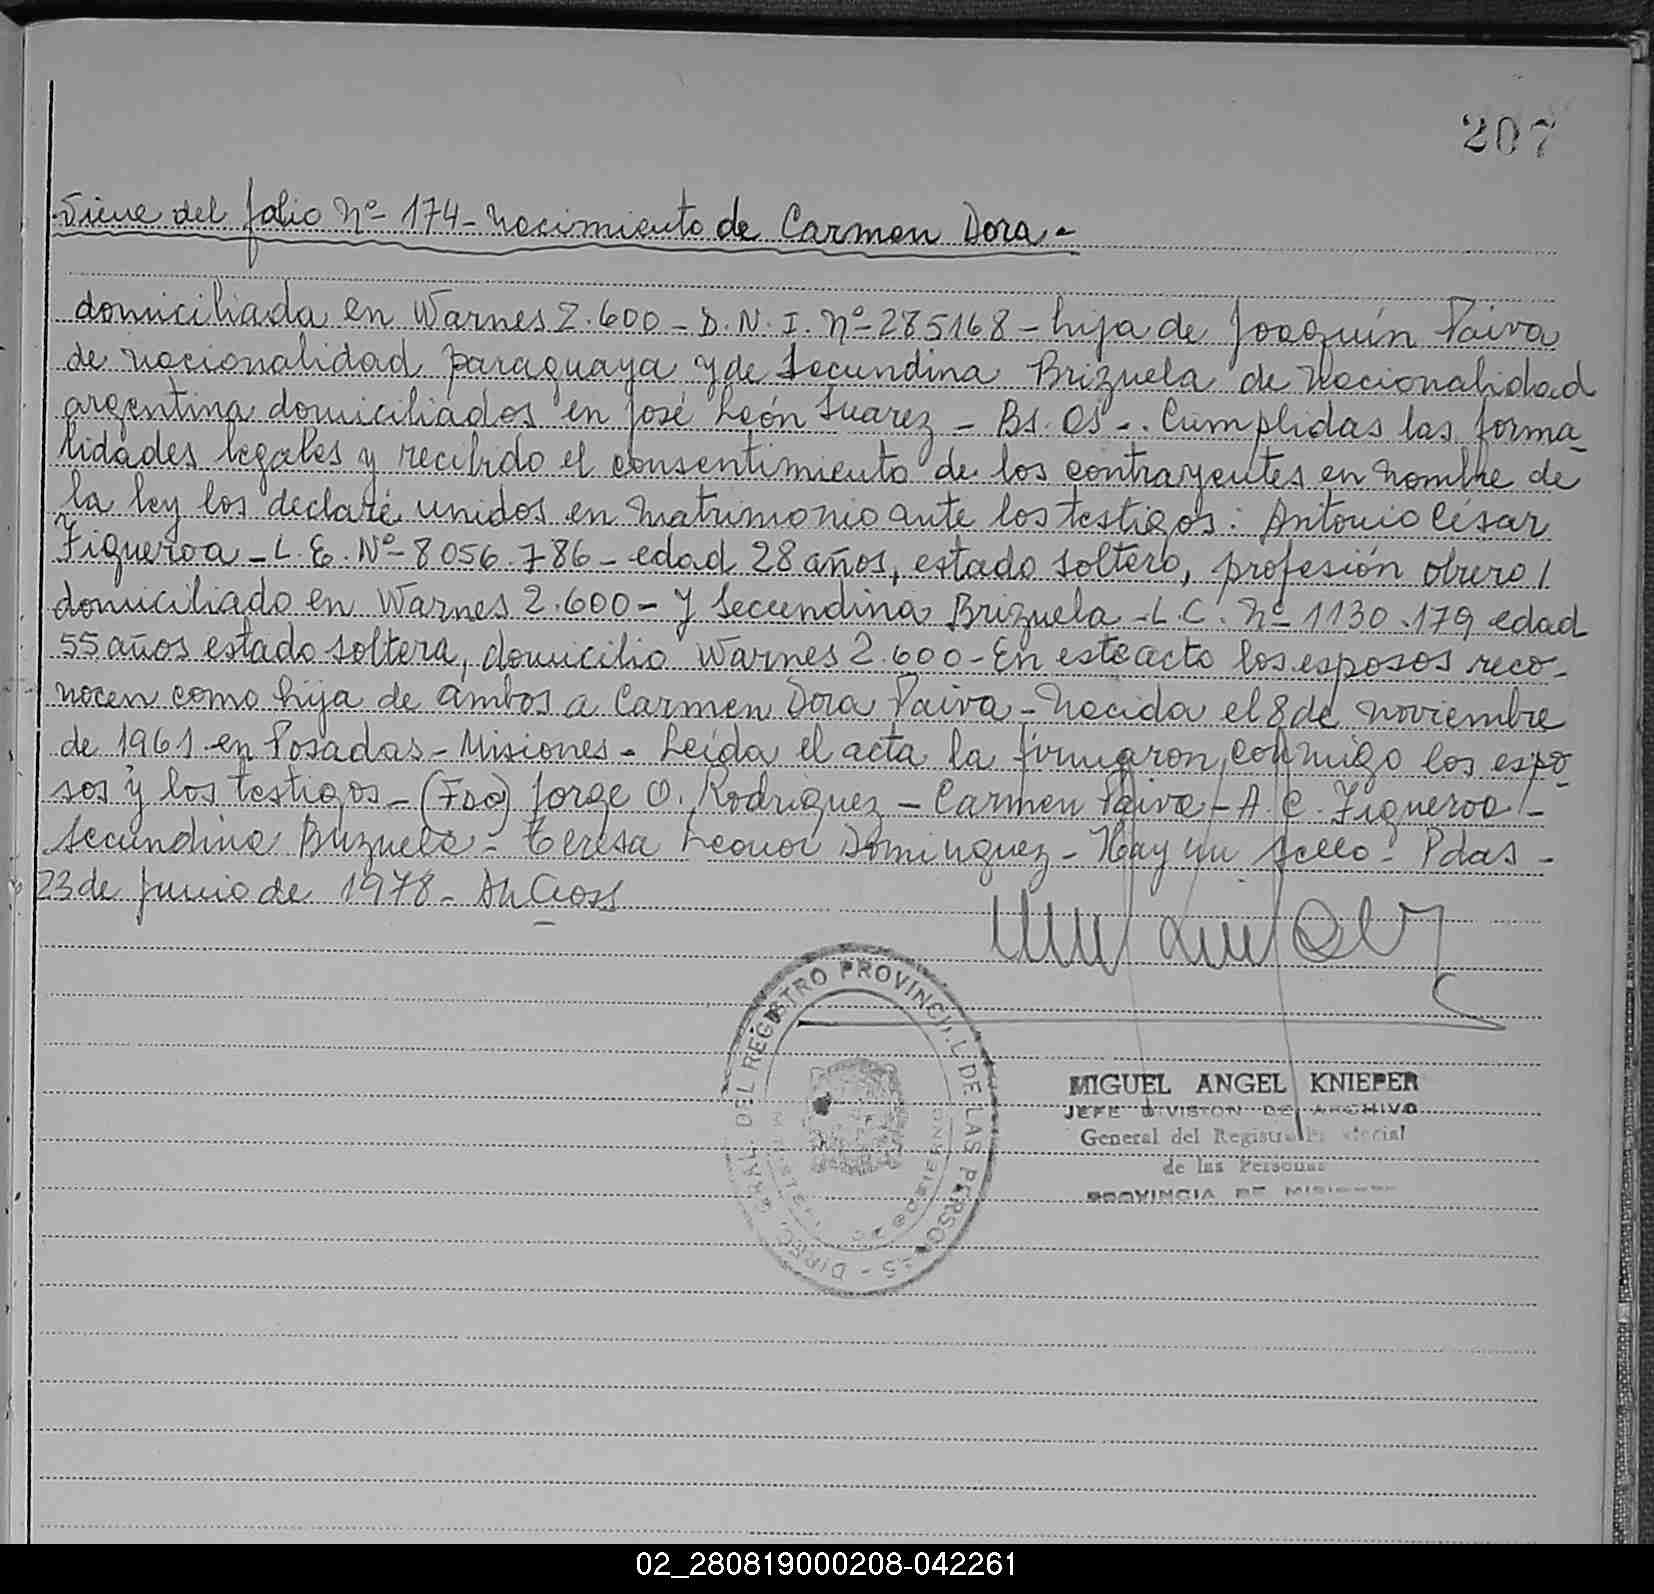 207
Viene del folio Nº 174 - Nacimiento de Carmen Dora -
domiciliada en Warnes 2.600 - D.N.I. Nº 285168 - hija de Joaquín Paiva
de nacionalidad paraguaya y de Secundina Brizuela de nacionalidad
argentina domiciliados en José León Suarez - Bs. As -. Cumplidas las forma-
lidades legales y recibido el consentimiento de los contrayentes en nombre de
la ley los declaré unidos en matrimonio ante los testigos: Antonio César
Figueroa - L.E. Nº 8056.786 - edad 28 años, estado soltero, profesión obrero /
domiciliado en Warnes 2.600 - y Secundina Brizuela - L.C. Nº 1130.179 edad
55 años estado soltera, domicilio Warnes 2.600 - En este acto los esposos reco-
nocen como hija de ambos a Carmen Dora Paiva - Nacida el 8 de noviembre
de 1961 en Posadas - Misiones - Leída el acta la firmaron conmigo los espo-
sos y los testigos - (Fdo) Jorge O. Rodriguez - Carmen Paiva - A.C. Figueroa -
Secundina Brizuela - Teresa Leonor Dominguez - Hay un sello - Pdas -
23 de Junio de 1978 -
DIREC. GRAL. DEL REGISTRO PROVINCIAL DE LAS PERSONAS
MIGUEL ANGEL KNIEPER
JEFE DIVISION DE ARCHIVO
General del Registro Provincial
de las Personas
PROVINCIA DE MISIONES
02_280819000208-042261